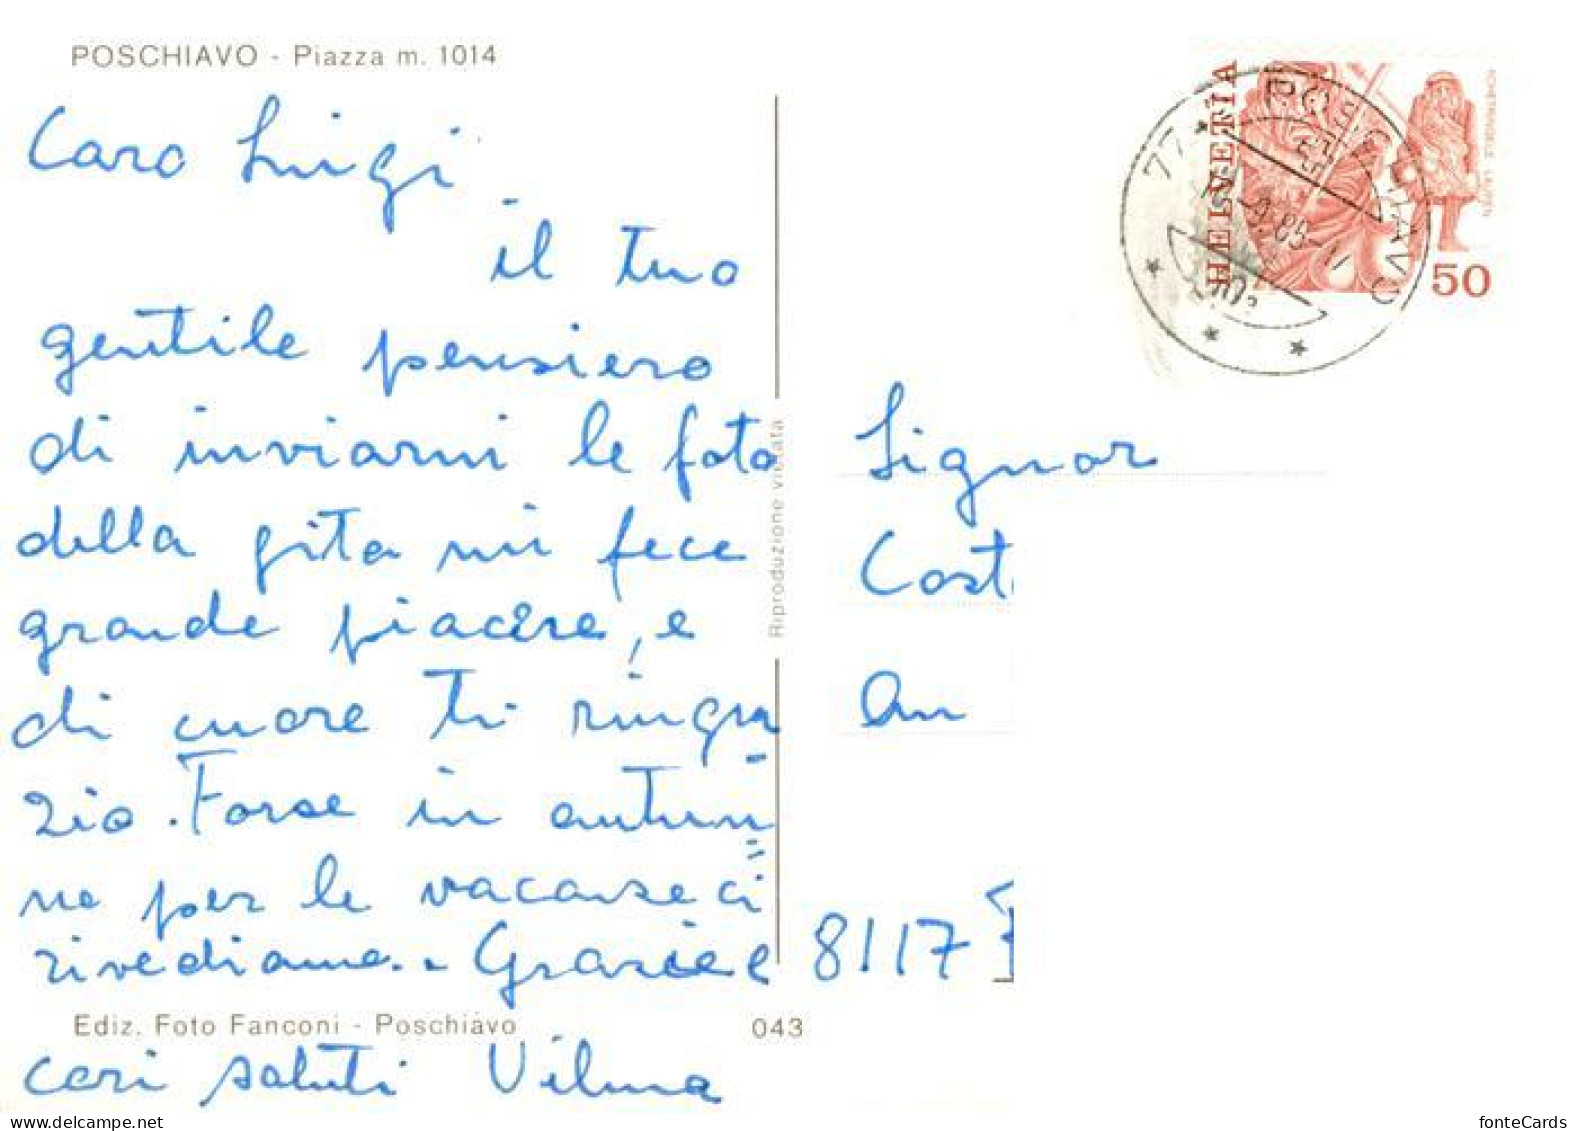 POSCHIAVO - Piazza m. 1014
Caro Luigi
il tuo
gentile pensiero
di inviarmi le foto
della gita mi fece
grande piacere, e
di cuore ti ringra
zio. Forse in autun
no per le vacanze ci
rivediamo. Grazie e
cari saluti Vilma
Ediz. Foto Fanconi - Poschiavo
043
Riproduzione vietata
HELVETIA
50
POSCHIAVO
77
Signor
Cost
An
8117
fonteCards